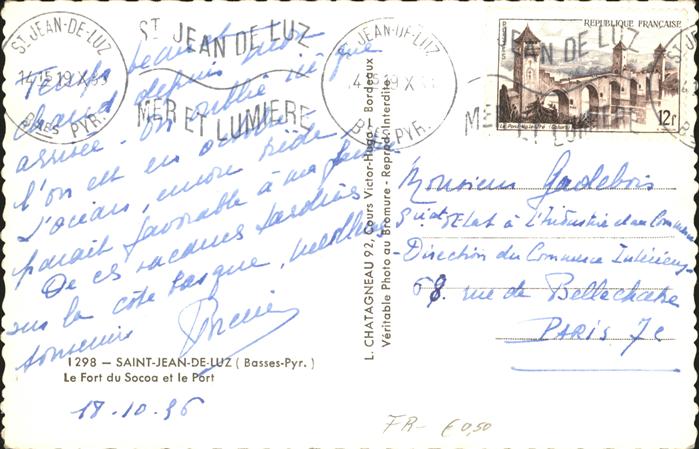 ST JEAN-DE-LUZ
14 15 19 X
Bses PYR.
ST JEAN DE LUZ
MER ET LUMIERE
ST JEAN-DE-LUZ
19 X
Bses PYR.
JEAN DE LUZ
REPUBLIQUE FRANÇAISE
POSTES
12f
Temps beau et
chaud depuis mon
arrivée. On oublie ici que
l'on est en octobre
L'océan, encore tiède
paraît favorable à ma
De ces vacances tardives
sur la côte basque, meilleurs
souvenirs
1298 – SAINT-JEAN-DE-LUZ (Basses-Pyr.)
Le Fort du Socoa et le Port
18.10.56
L. CHATAGNEAU 92, Cours Victor-Hugo – Bordeaux
Véritable Photo au Bromure - Reprod. Interdite
Monsieur
S. d'Etat à l'Industrie et au Commerce
Direction du Commerce Intérieur
68. rue de Bellechasse
PARIS 7e
FR- € 0,50